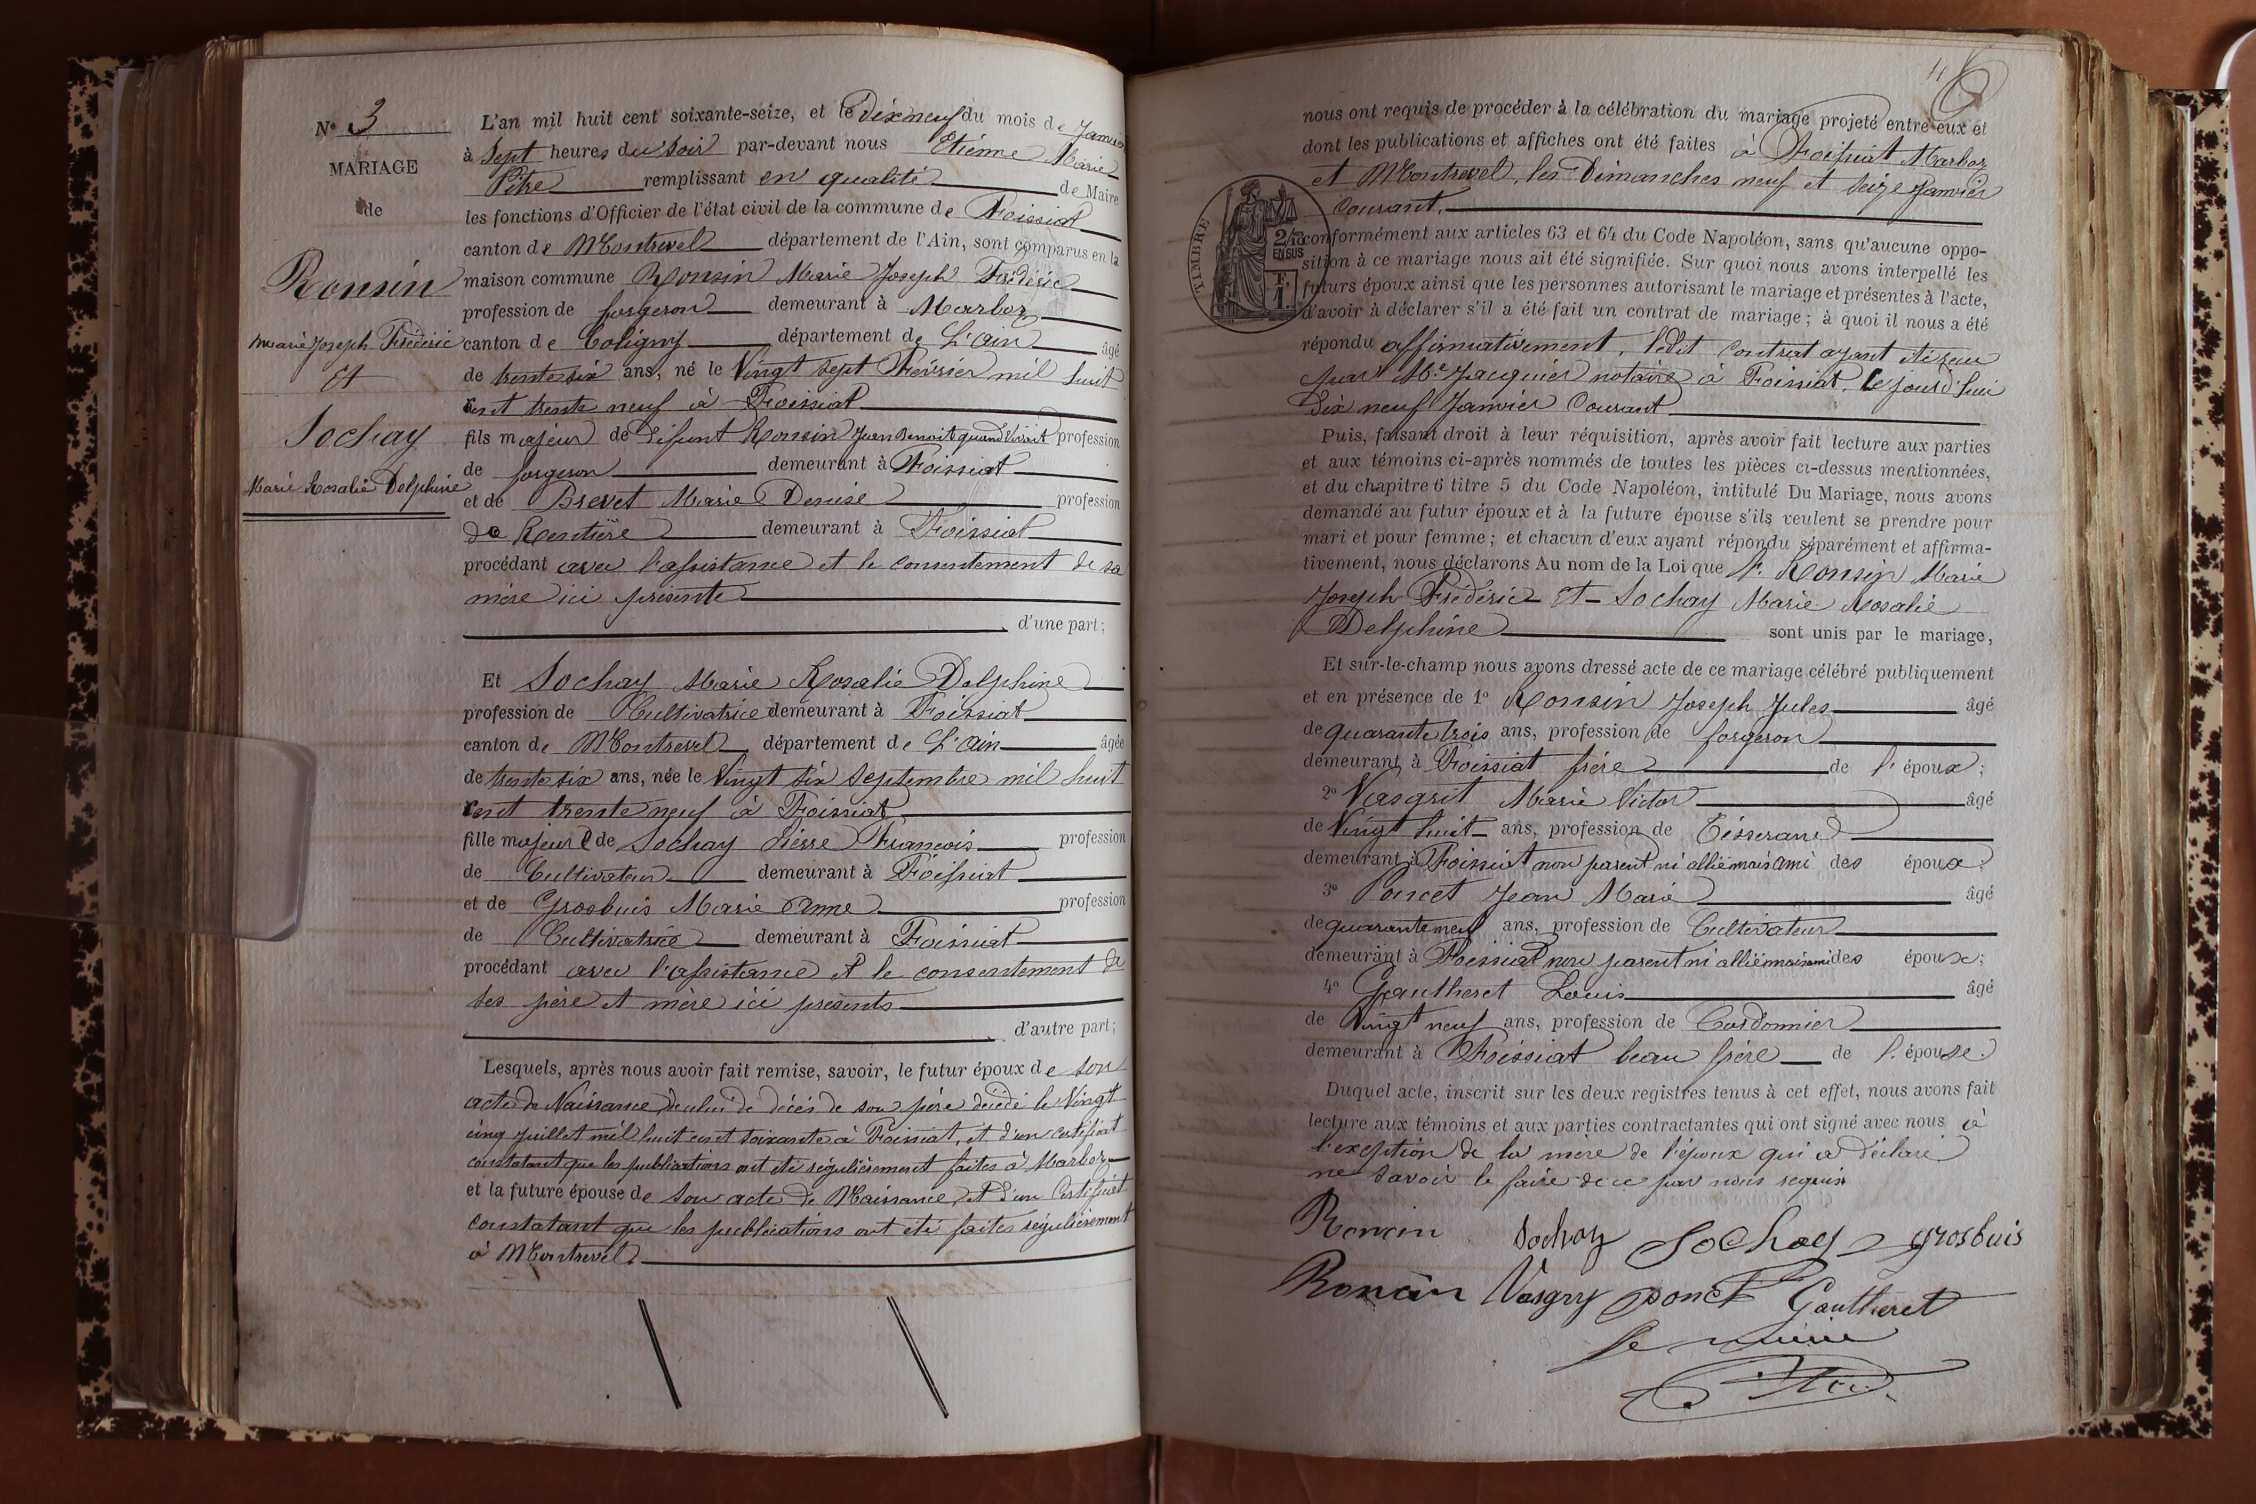 N° 3
MARIAGE
de
Ronsin
Marie Joseph Frédéric
Et
Sochay
Marie Rosalie Delphine
L'an mil huit cent soixante-seize, et le Dix neuf du mois de Janvier
à Sept heures du Soir par-devant nous Etienne Marie
Pitre remplissant en qualité de Maire
les fonctions d'Officier de l'état civil de la commune de Foissiat
canton de Montrevel département de l'Ain, sont comparus en la
maison commune Ronsin Marie Joseph Frédéric
profession de forgeron demeurant à Marboz
canton de Coligny département de L'ain âgé
de trente six ans, né le Vingt sept Février mil huit
cent trente neuf à Foissiat
fils majeur de défunt Ronsin Jean Benoit quand Vivait profession
de forgeron demeurant à Foissiat
et de Brevet Marie Denise profession
de Rentière demeurant à Foissiat
procédant avec l'assistance et le consentement de sa
mère ici présente
d'une part;
Et Sochay Marie Rosalie Delphine
profession de Cultivatrice demeurant à Foissiat
canton de Montrevel département de L'ain âgée
de trente six ans, née le Vingt six Septembre mil huit
cent trente neuf à Foissiat
fille majeure de Sochay Pierre François profession
de Cultivateur demeurant à Foissiat
et de Grosbuis Marie Anne profession
de Cultivatrice demeurant à Foissiat
procédant avec l'assistance et le consentement de
ses père et mère ici présents
d'autre part;
Lesquels, après nous avoir fait remise, savoir, le futur époux de son
acte de Naissance, de celui de décès de son père décédé le Vingt
cinq Juillet mil huit cent soixante à Foissiat, et d'un certificat
constatant que les publications ont été régulièrement faites à Marboz
et la future épouse de son acte de Naissance, et d'un Certificat
constatant que les publications ont été faites régulièrement
à Montrevel.
4
nous ont requis de procéder à la célébration du mariage projeté entre eux et
dont les publications et affiches ont été faites à Foissiat Marboz
et Montrevel, les Dimanches neuf et seize Janvier
Courant.
TIMBRE
2/10
EN SUS
F.
1.
conformément aux articles 63 et 64 du Code Napoléon, sans qu'aucune oppo-
sition à ce mariage nous ait été signifiée. Sur quoi nous avons interpellé les
futurs époux ainsi que les personnes autorisant le mariage et présentes à l'acte,
d'avoir à déclarer s'il a été fait un contrat de mariage; à quoi il nous a été
répondu affirmativement, ledit contrat ayant été reçu
par Me Jacquier notaire à Foissiat, le jourd'hui
Dix neuf Janvier Courant
Puis, faisant droit à leur réquisition, après avoir fait lecture aux parties
et aux témoins ci-après nommés de toutes les pièces ci-dessus mentionnées,
et du chapitre 6 titre 5 du Code Napoléon, intitulé Du Mariage, nous avons
demandé au futur époux et à la future épouse s'ils veulent se prendre pour
mari et pour femme; et chacun d'eux ayant répondu séparément et affirma-
tivement, nous déclarons Au nom de la Loi que Ronsin Marie
Joseph Frédéric Et Sochay Marie Rosalie
Delphine sont unis par le mariage,
Et sur-le-champ nous avons dressé acte de ce mariage célébré publiquement
et en présence de 1° Ronsin Joseph Jules âgé
de quarante trois ans, profession de forgeron
demeurant à Foissiat frère de l'époux;
2° Vasgrit Marie Victor âgé
de Vingt huit ans, profession de Tisserand
demeurant à Foissiat non parent ni allié mais ami des époux.
3° Poncet Jean Marie âgé
de quarante neuf ans, profession de Cultivateur
demeurant à Foissiat non parent ni allié mais ami des époux;
4° Gautheret Louis âgé
de Vingt neuf ans, profession de Cordonnier
demeurant à Foissiat beau frère de l'épouse.
Duquel acte, inscrit sur les deux registres tenus à cet effet, nous avons fait
lecture aux témoins et aux parties contractantes qui ont signé avec nous à
l'exeption de la mère de l'époux qui a déclaré
ne savoir le faire de ce par nous requis
Ronsin Sochay Sochay Grosbuis
Roncin Vasgry Poncet Gautheret
Le maire
Pitre